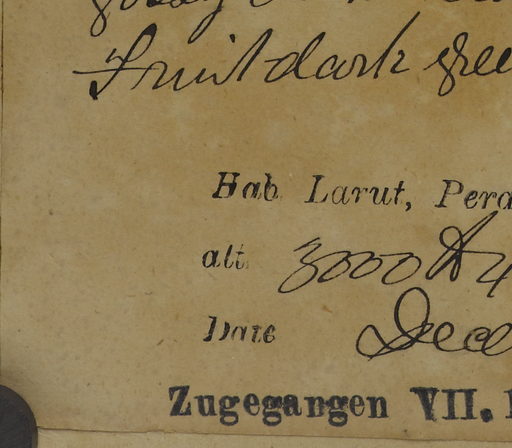 Fruit dark gree
Hab Larut, Pera
alt. 3000 ft 4
Date Dece
Zugegangen VII. 1